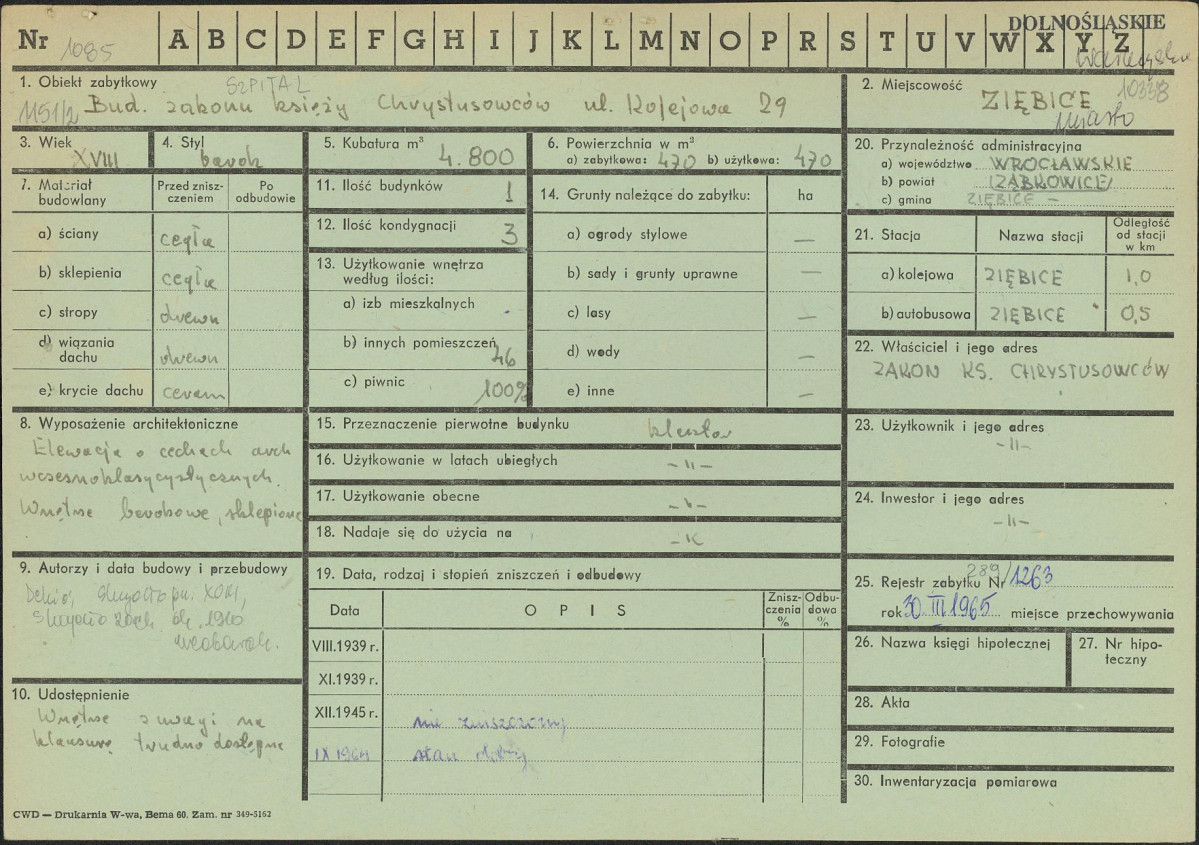 DOLNOŚLĄSKIE
Nr 1085 A B C D E F G H I J K L M N O P R S T U V W X Y Z
1. Obiekt zabytkowy SZPITAL
1151/2 Bud. zakonu księży Chrystusowców ul. Kolejowa 29
2. Miejscowość 10338
ZIĘBICE
miasto
3. Wiek
XVIII
4. Styl
barok
5. Kubatura m³
4.800
6. Powierzchnia w m²
a) zabytkowa: 470 b) użytkowa: 470
7. Materiał budowlany
Przed zniszczeniem
Po odbudowie
a) ściany cegła
b) sklepienia cegła
c) stropy drewn
d) wiązania dachu drewn
e) krycie dachu ceram
8. Wyposażenie architektoniczne
Elewacja o cechach arch
wczesnoklasycystycznych.
Wnętrze barokowe, sklepione
9. Autorzy i data budowy i przebudowy
10. Udostępnienie
Wnętrze z uwagi na
klauzurę trudno dostępne
11. Ilość budynków 1
12. Ilość kondygnacji 3
13. Użytkowanie wnętrza według ilości:
a) izb mieszkalnych
b) innych pomieszczeń 46
c) piwnic 100%
14. Grunty należące do zabytku: ha
a) ogrody stylowe —
b) sady i grunty uprawne —
c) lasy —
d) wody —
e) inne —
15. Przeznaczenie pierwotne budynku klasztor
16. Użytkowanie w latach ubiegłych -"-
17. Użytkowanie obecne -"-
18. Nadaje się do użycia na -"-
19. Data, rodzaj i stopień zniszczeń i odbudowy
Data OPIS Zniszczenia % Odbudowa %
VIII.1939 r.
XI.1939 r.
XII.1945 r. nie zniszczony
IX 1964 stan
20. Przynależność administracyjna
a) województwo WROCŁAWSKIE
b) powiat ZĄBKOWICE
c) gmina ZIĘBICE —
21. Stacja Nazwa stacji Odległość od stacji w km
a) kolejowa ZIĘBICE 1,0
b) autobusowa ZIĘBICE 0,5
22. Właściciel i jego adres
ZAKON KS. CHRYSTUSOWCÓW
23. Użytkownik i jego adres
-"-
24. Inwestor i jego adres
-"-
25. Rejestr zabytku Nr 289/1263
rok 30 III 1965 miejsce przechowywania
26. Nazwa księgi hipotecznej
27. Nr hipoteczny
28. Akta
29. Fotografie
30. Inwentaryzacja pomiarowa
CWD — Drukarnia W-wa, Bema 60. Zam. nr 349-5162